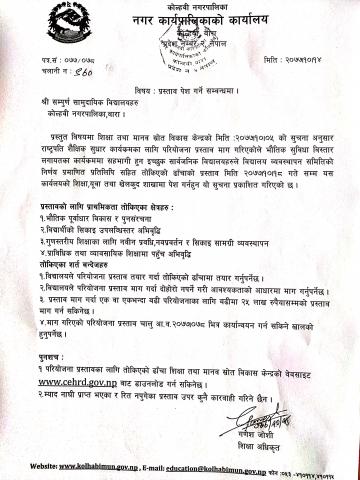 कोल्हवी नगरपालिका
नगर कार्यपालिकाको कार्यालय
कोल्हवी, बारा
प्रदेश नम्बर २, नेपाल
प.सं : ०७७/०७८
मिति : २०७७।१०।१४
चलानी नं :
विषय : प्रस्ताव पेश गर्ने सम्बन्धमा ।
श्री सम्पुर्ण सामुदायिक विद्यालयहरु
कोल्हवी नगरपालिका,बारा ।
प्रस्तुत विषयमा शिक्षा तथा मानव स्रोत विकास केन्द्रको मिति :२०७७।१०।०५ को सूचना अनुसार
राष्ट्रपति शैक्षिक सुधार कार्यक्रमको लागि परियोजना प्रस्ताव माग गरिएकोले भौतिक सुविधा विस्तार
लगायतका कार्यक्रममा सहभागी हुन इच्छुक सार्वजनिक विद्यालयहरुले विद्यालय व्यवस्थापन समितिको
निर्णय प्रमाणित प्रतिलिपि सहित तोकिएको ढाँचाको प्रस्ताव मिति २०७७।१०।२८ गते सम्म यस
कार्यलयको शिक्षा,युवा तथा खेलकुद शाखामा पेश गर्नहुन यो सुचना प्रकाशित गरिएको छ ।
प्रस्तावको लागि प्राथमिकता तोकिएका क्षेत्रहरु :
१.भौतिक पूर्वाधार विकास र पुनसंरचना
२.विद्यार्थीको सिकाइ उपलब्धिस्तर अभिवृद्धि
३.गुणस्तरीय शिक्षाका लागि नवीन प्रवधि,नवप्रवर्तन र सिकाइ सामग्री व्यवस्थापन
४.प्राविधिक तथा व्यावसायिक शिक्षामा पहुँच अभिवृद्धि
तोकिएका शर्त बन्देजहरु
१.विद्यालयले परियोजना प्रस्ताव तयार गर्दा तोकिएको ढाँचामा तयार गर्नुपर्नेछ ।
२.विद्यालयले परियोजना प्रस्ताव माग गर्दा दोहोरो नपर्ने गरी आवश्यकताको आधारमा माग गर्नुपर्नेछ ।
३. प्रस्ताव माग गर्दा एक वा एकभन्दा बढी परियोजनाका लागि बढीमा २५ लाख रुपैयासम्मको प्रस्ताव
माग गर्न सकिनेछ ।
४.माग गरिएको परियोजना प्रस्ताव चालु आ.व.२०७७।०७८ भित्र कार्यान्वयन गर्न सकिने खालको
हुनुपर्नेछ ।
पुनशच :
१ परियोजना प्रस्तावका लागि तोकिएको ढाँचा शिक्षा तथा मानव स्रोत विकास केन्द्रको वेवसाइट
www.cehrd.gov.np बाट डाउनलोड गर्न सकिनेछ ।
२.म्याद नाघी प्राप्त भएका र रित नपुगेका प्रस्ताव उपर कुनै कारवाही गरिने छैन ।
गणेश जोशी
शिक्षा अधिकृत
Website: www.kolhabimun.gov.np , E-mail: education@kolhabimun.gov.np